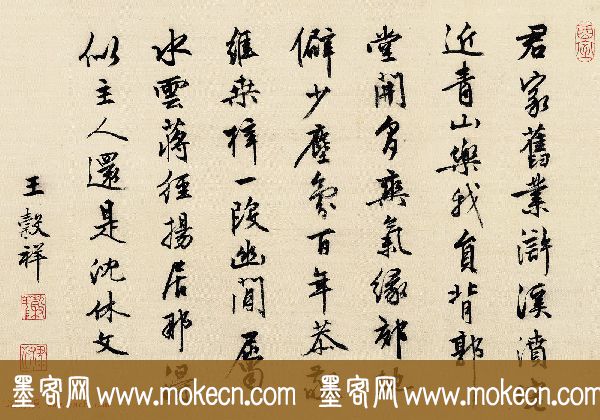 君家舊業滸溪濆
近青山樂我員背郭
堂開多爽氣緣郊
僻少塵氛百年恭敬
維桑梓一段幽閒屬
水雲蔣徑揚居那得
似主人還是沈休文
王穀祥
墨客网 www.mokecn.com 墨客网 www.mokecn.com